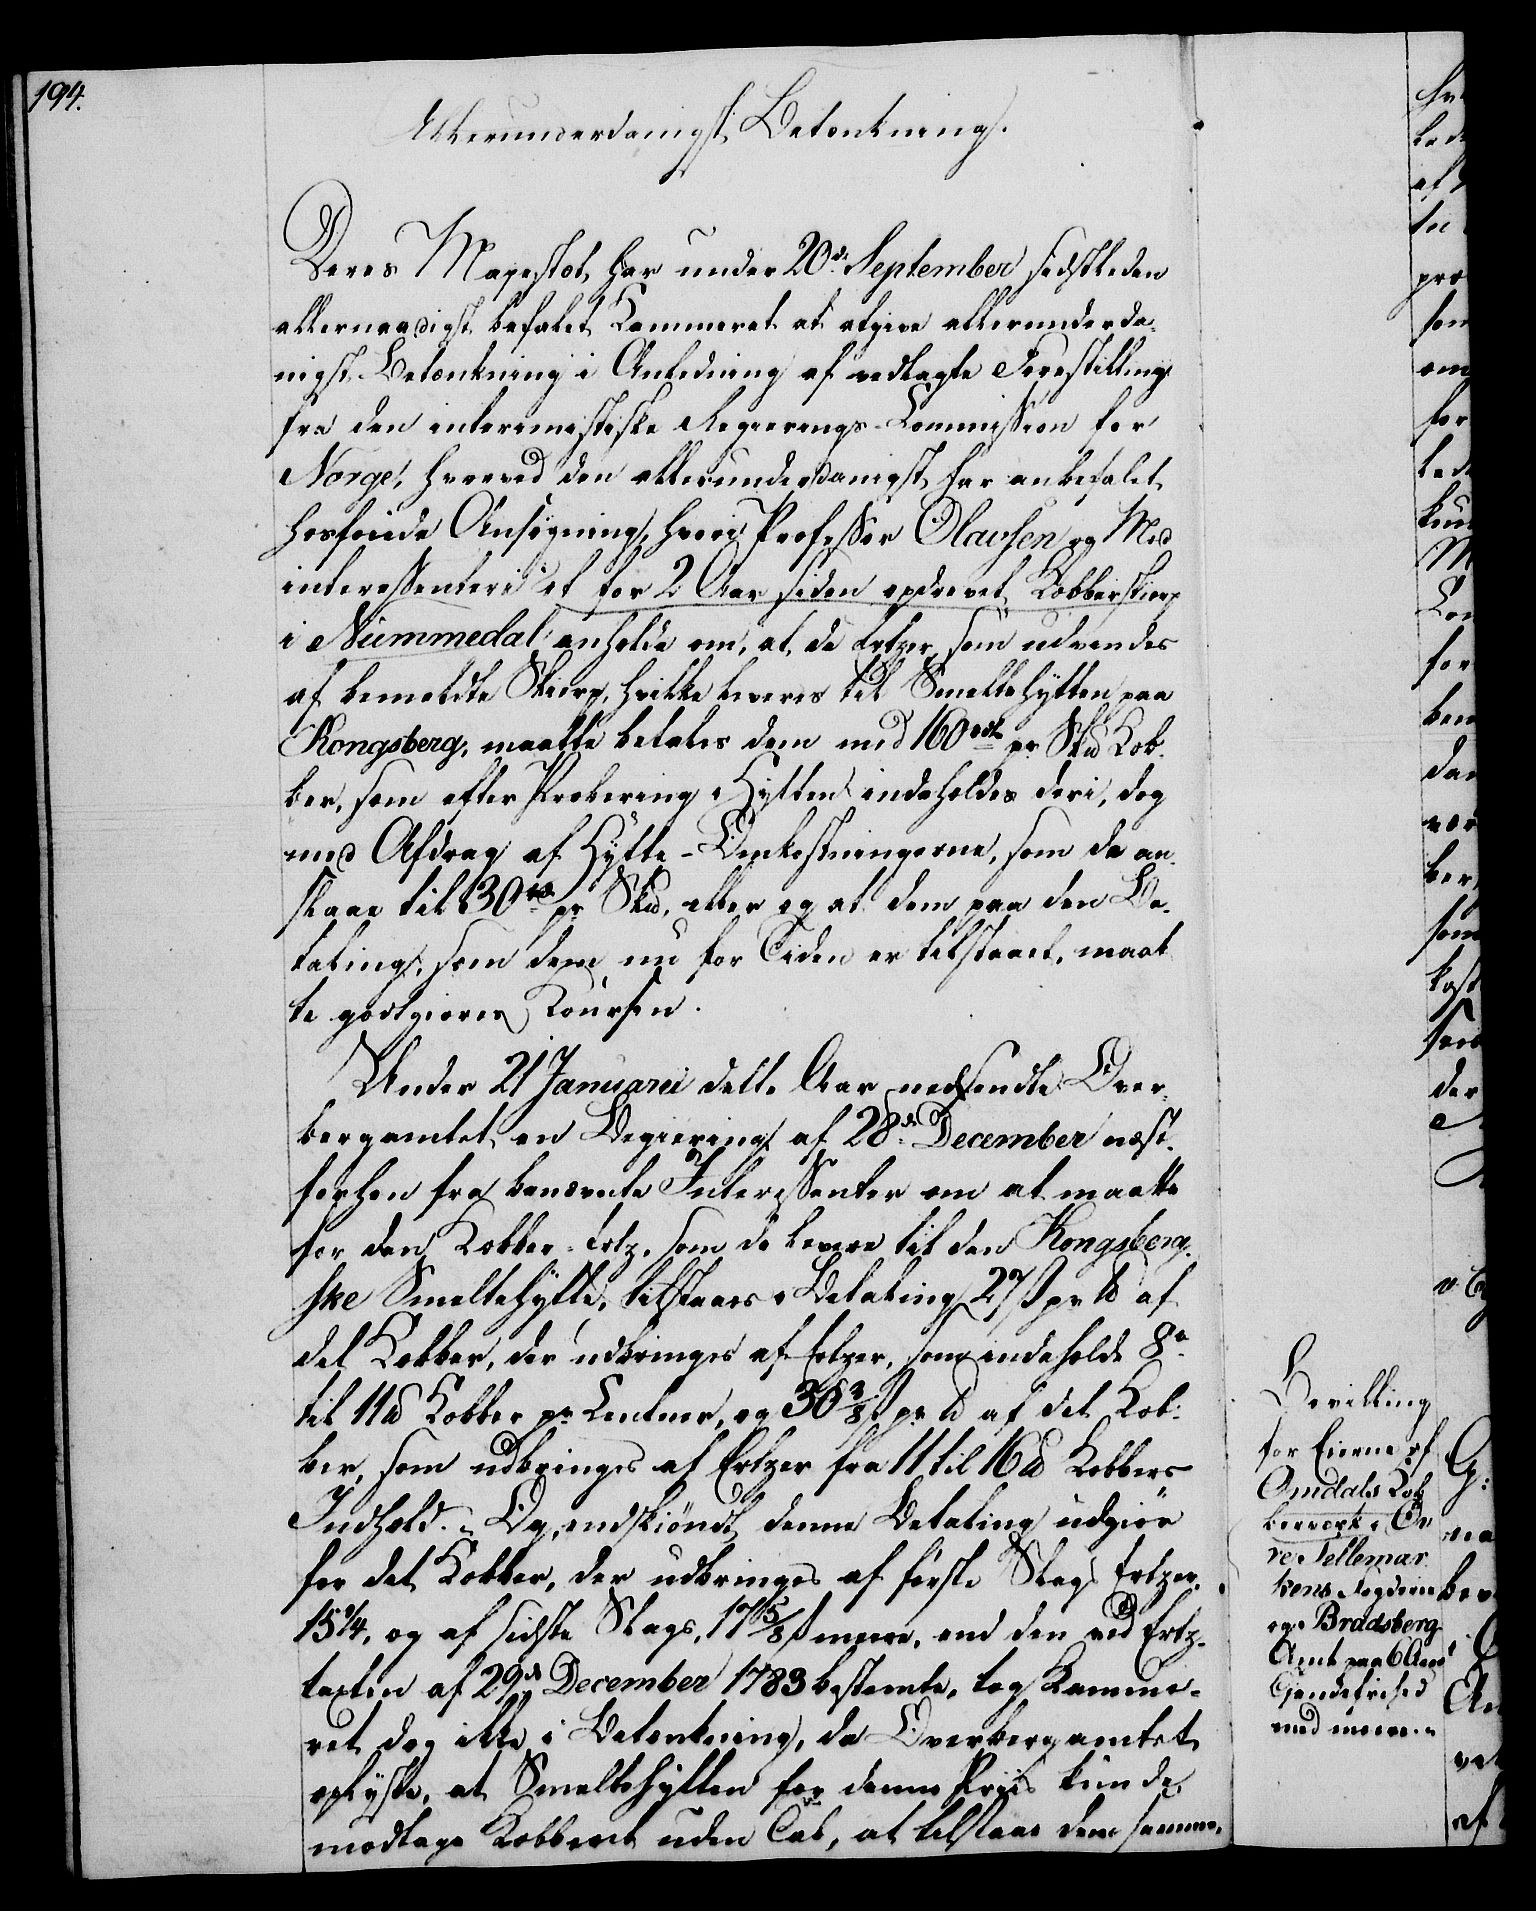 194.
Allerunderdanigst Betænkning.
Deres Majestæt har under 20de September sidstleden
allernaadigst befalet Kammeret at afgive allerunderda-
nigst Betænkning i Anledning af vedlagte Forestilling
fra den interimistiske Regierings-Commission for
Norge, hvorved den allerunderdanigst har anbefalet
hosføiede Ansøgning, hvori Professor Olavsen og Med
interessentere i et for 2 Aar siden opdrevet Kobberskierp
i Nummedal anholde om, at de Ertzer, som udvindes
af bemeldte Skierp, hvilke leveres til Smeltehytten paa
Kongsberg, maatte betales dem med 160 rdl pr Skd Kob-
ber, som efter Probering i Hytten indeholdes deri, dog
med Afdrag af Hytte-Omkostningerne, som de an-
slaae til 30 rd pr Skd, eller og at dem paa den Be-
taling, som dem nu for Tiden er tilstaaet, maat
te godtgiøres Coursen.
Under 21 Januarii dette Aar nedsendte Over-
bergamtet en Begiering af 28de December næst-
forhen fra benævnte Interessenter om at maatte
for den Kobber-Ertz, som de levere til den Kongsberg-
ske Smeltehytte, tilstaaes i Betaling 27 ß pr ℔ af
det Kobber, der udbringes af Ertzer, som indeholde 8 a
til 11 ℔ Kobber pr Centner, og 30 3/8 ß pr ℔ af det Kob-
ber, som udbringes af Ertzer fra 11 til 16 ℔ Kobbers
Indhold. Og, endskiøndt denne Betaling udgiør
for det Kobber, der udbringes af første Slags Ertzer,
15 3/4, og af sidste Slags, 17 5/8 ß meere, end den ved Ertz-
taxten af 29de December 1783 bestemte, tog Kamme-
ret dog ikke i Betænkning, da Overbergamtet
oplyste, at Smeltehytten for denne Priis kunde
modtage Kobberet uden Tab, at tilstaae dem samme.
Bevilling
for Eierne af
Omdals Kob
berverk i Öv
re Tellemar
kens Fogderie
og Bradsberg
Amt paa 6 Aars
Tiendefrihed
med meere.